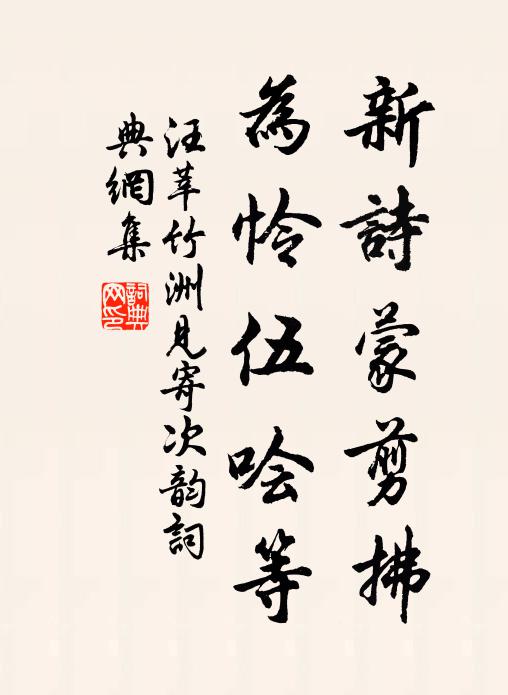 新詩蒙剪拂
為怜伍哙等
汪莘竹洲見寄次韵詞
典網集
詞典网印